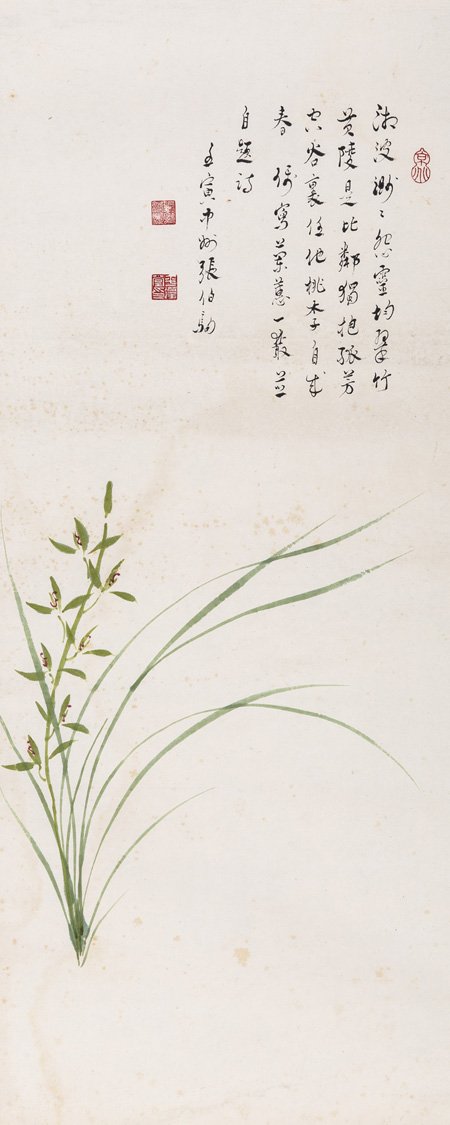 湘波渺〻怨靈均翠竹
黄陵是比鄰獨抱孤芳
空谷裏任他桃李自成
春 偶寫蘭蕙一叢並
自題詩
壬寅中州張伯駒